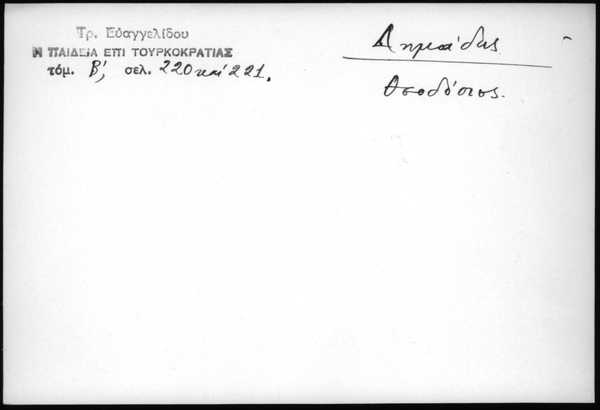 Τρ. Εὐαγγελίδου
Η ΠΑΙΔΕΙΑ ΕΠΙ ΤΟΥΡΚΟΚΡΑΤΙΑΣ
τόμ. Β', σελ. 220 καὶ 221.
Δημάδης
Θεοδόσιος.